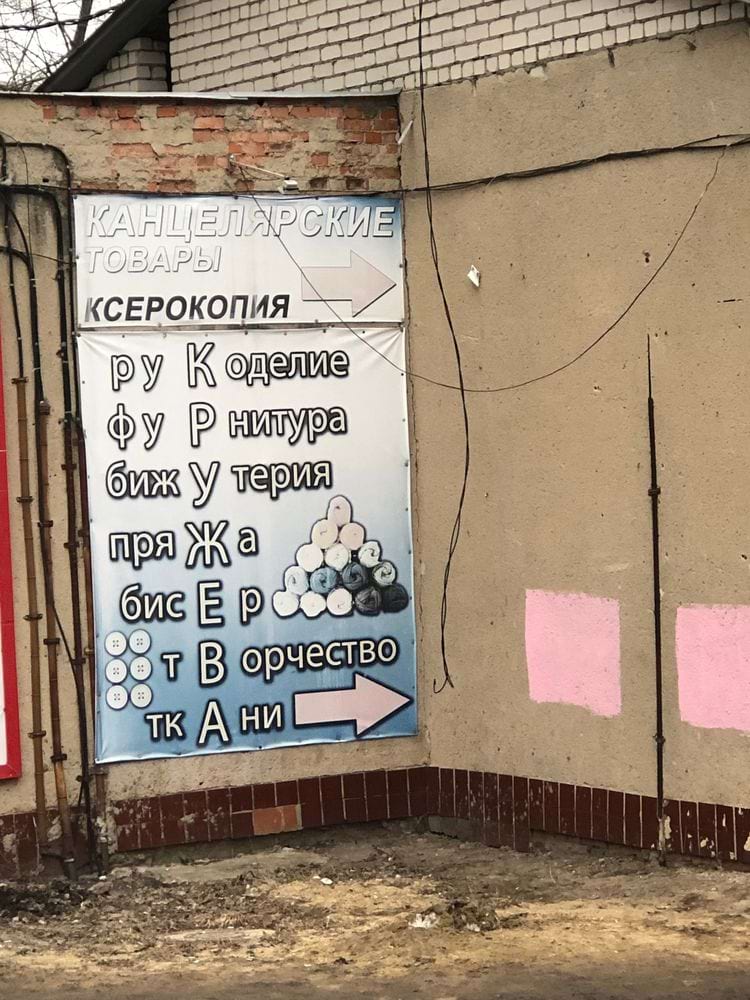 КАНЦЕЛЯРСКИЕ
ТОВАРЫ
КСЕРОКОПИЯ
руКоделие
фуРнитура
бижУтерия
пряЖа
бисЕр
тВорчество
ткАни